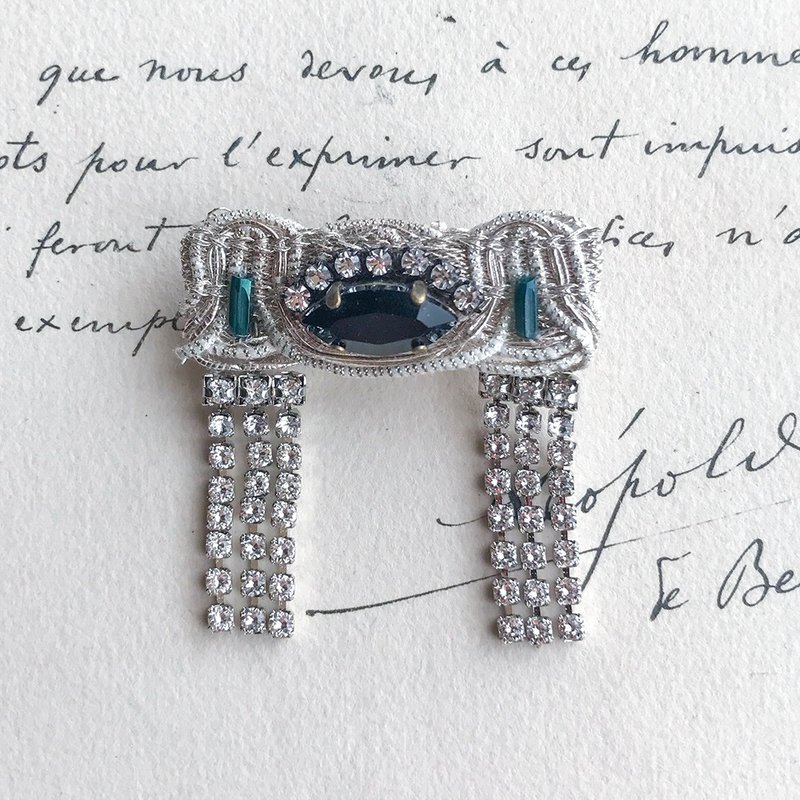 que nous devons à ces homme
ots pour l'exprimer sont impuis
feront tices n'a
exempl
Léopold
de Be